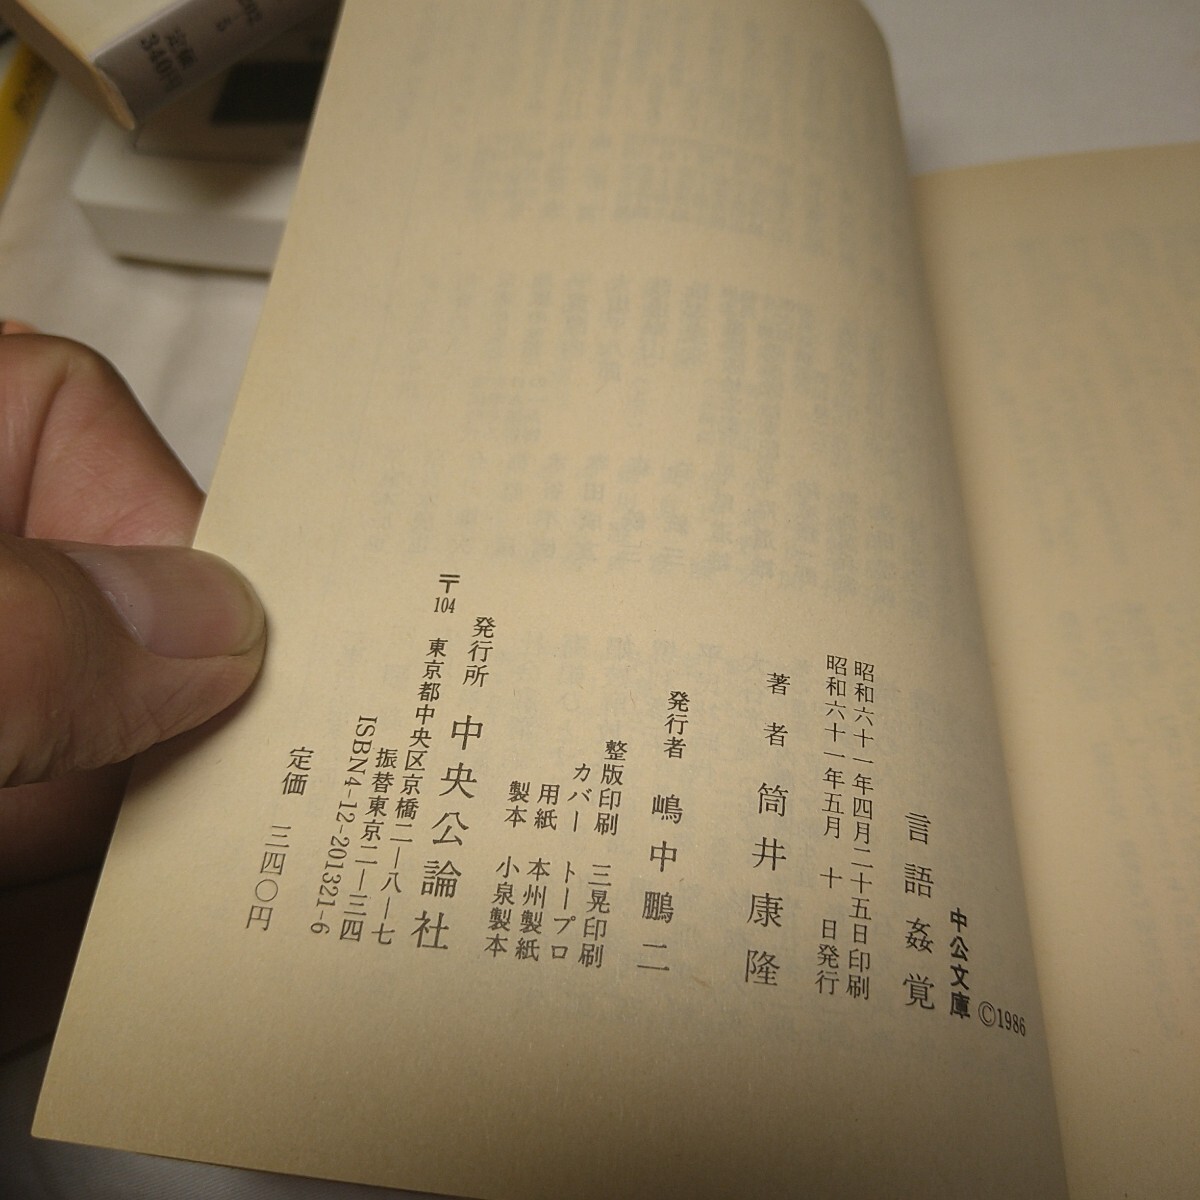 中公文庫 ©1986
言語姦覚
昭和六十一年四月二十五日印刷
昭和六十一年五月 十 日発行
著者 筒井康隆
発行者 嶋中鵬二
整版印刷 三晃印刷
カバー トープロ
用紙 本州製紙
製本 小泉製本
発行所 中央公論社
〒104 東京都中央区京橋二—八—七
振替東京二—三四
ISBN4-12-201321-6
定価 三四〇円
定価
340円